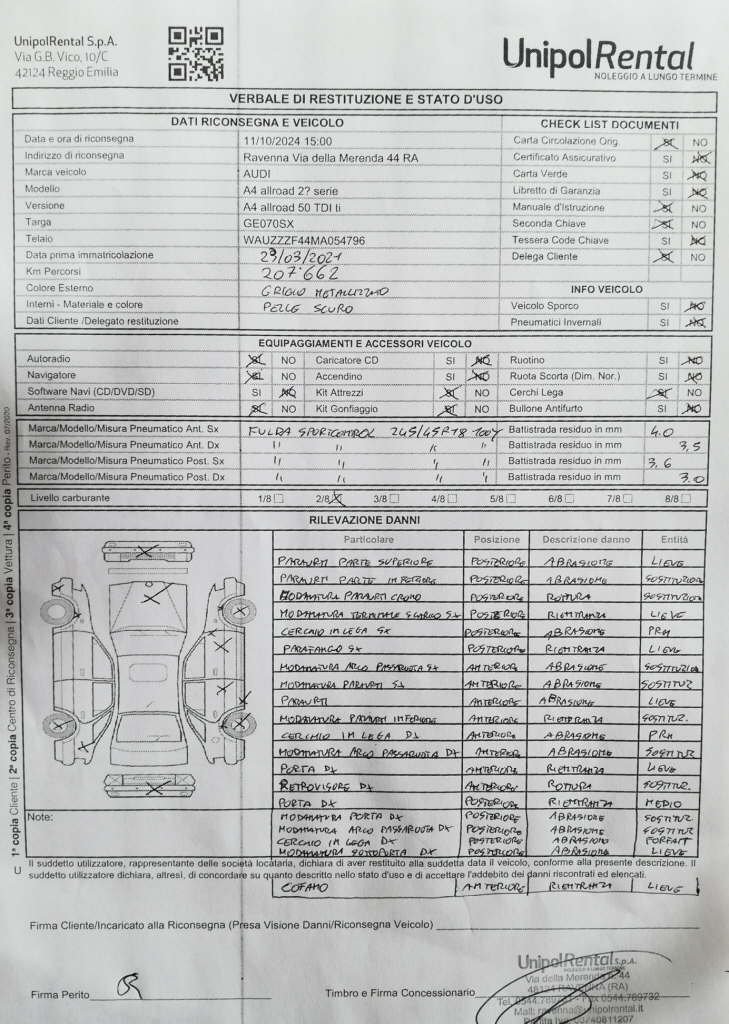 UnipolRental S.p.A.
Via G.B. Vico, 10/C
42124 Reggio Emilia
UnipolRental
NOLEGGIO A LUNGO TERMINE
VERBALE DI RESTITUZIONE E STATO D'USO
DATI RICONSEGNA E VEICOLO CHECK LIST DOCUMENTI
Data e ora di riconsegna 11/10/2024 15:00 Carta Circolazione Orig. SI NO
Indirizzo di riconsegna Ravenna Via della Merenda 44 RA Certificato Assicurativo SI NO
Marca veicolo AUDI Carta Verde SI NO
Modello A4 allroad 2? serie Libretto di Garanzia SI NO
Versione A4 allroad 50 TDI ti Manuale d'Istruzione SI NO
Targa GE070SX Seconda Chiave SI NO
Telaio WAUZZZF44MA054796 Tessera Code Chiave SI NO
Data prima immatricolazione 23/03/2021 Delega Cliente SI NO
Km Percorsi 207'662
Colore Esterno GRIGIO METALLIZZATO INFO VEICOLO
Interni - Materiale e colore PELLE SCURO Veicolo Sporco SI NO
Dati Cliente /Delegato restituzione Pneumatici Invernali SI NO
EQUIPAGGIAMENTI E ACCESSORI VEICOLO
Autoradio SI NO Caricatore CD SI NO Ruotino SI NO
Navigatore SI NO Accendino SI NO Ruota Scorta (Dim. Nor.) SI NO
Software Navi (CD/DVD/SD) SI NO Kit Attrezzi SI NO Cerchi Lega SI NO
Antenna Radio SI NO Kit Gonfiaggio SI NO Bullone Antifurto SI NO
Marca/Modello/Misura Pneumatico Ant. Sx FULDA SPORTCONTROL 245/45R18 100Y Battistrada residuo in mm 4.0
Marca/Modello/Misura Pneumatico Ant. Dx " " " " Battistrada residuo in mm 3.5
Marca/Modello/Misura Pneumatico Post. Sx " " " " Battistrada residuo in mm 3.6
Marca/Modello/Misura Pneumatico Post. Dx " " " " Battistrada residuo in mm 3.0
Livello carburante 1/8 2/8 3/8 4/8 5/8 6/8 7/8 8/8
RILEVAZIONE DANNI
Particolare Posizione Descrizione danno Entità
PARAURTI PARTE SUPERIORE POSTERIORE ABRASIONE LIEVE
PARAURTI PARTE INFERIORE POSTERIORE ABRASIONE SOSTITUZION
MODANATURA PARAURTI CROMO POSTERIORE ROTTURA SOSTITUZION
MODANATURA TERMINALE SCARICO SX POSTERIORE RIENTRANZA LIEVE
CERCHIO IN LEGA SX POSTERIORE ABRASIONE PRM
PARAFANGO SX POSTERIORE RIENTRANZA LIEVE
MODANATURA ARCO PASSARUOTA SX ANTERIORE ABRASIONE SOSTITUZIO
MODANATURA PARAURTI SX ANTERIORE ABRASIONE SOSTITUZ
PARAURTI ANTERIORE ABRASIONE LIEVE
MODANATURA PARAURTI INFERIORE ANTERIORE RIENTRANZA SOSTITUZ.
CERCHIO IN LEGA DX ANTERIORE ABRASIONE PRM
MODANATURA ARCO PASSARUOTA DX ANTERIORE ABRASIONE SOSTITUZ
PORTA DX ANTERIORE RIENTRANZA LIEVE
RETROVISORE DX ANTERIORE ROTTURA SOSTITUZ.
PORTA DX POSTERIORE RIENTRANZA MEDIO
MODANATURA PORTA DX POSTERIORE ABRASIONE SOSTITUZ
MODANATURA ARCO PASSARUOTA DX POSTERIORE ABRASIONE SOSTITUZ
CERCHIO IN LEGA DX POSTERIORE ABRASIONE FORFAIT
MODANATURA SOTTOPORTA DX POSTERIORE ABRASIONE LIEVE
Note:
Il suddetto utilizzatore, rappresentante delle società locataria, dichiara di aver restituito alla suddetta data il veicolo, conforme alla presente descrizione. Il
U suddetto utilizzatore dichiara, altresì, di concordare su quanto descritto nello stato d'uso e di accettare l'addebito dei danni riscontrati ed elencati.
COFANO ANTERIORE RIENTRANZA LIEVE
Firma Cliente/Incaricato alla Riconsegna (Presa Visione Danni/Riconsegna Veicolo)
Firma Perito Timbro e Firma Concessionario
UnipolRental S.p.A.
NOLEGGIO A LUNGO TERMINE
Via della Merenda n. 44
48124 RAVENNA (RA)
Fax 0544.789732
Mail: ravenna@unipolrental.it
1ª copia Cliente | 2ª copia Centro di Riconsegna | 3ª copia Vettura | 4ª copia Perito - Rev. 07/2020